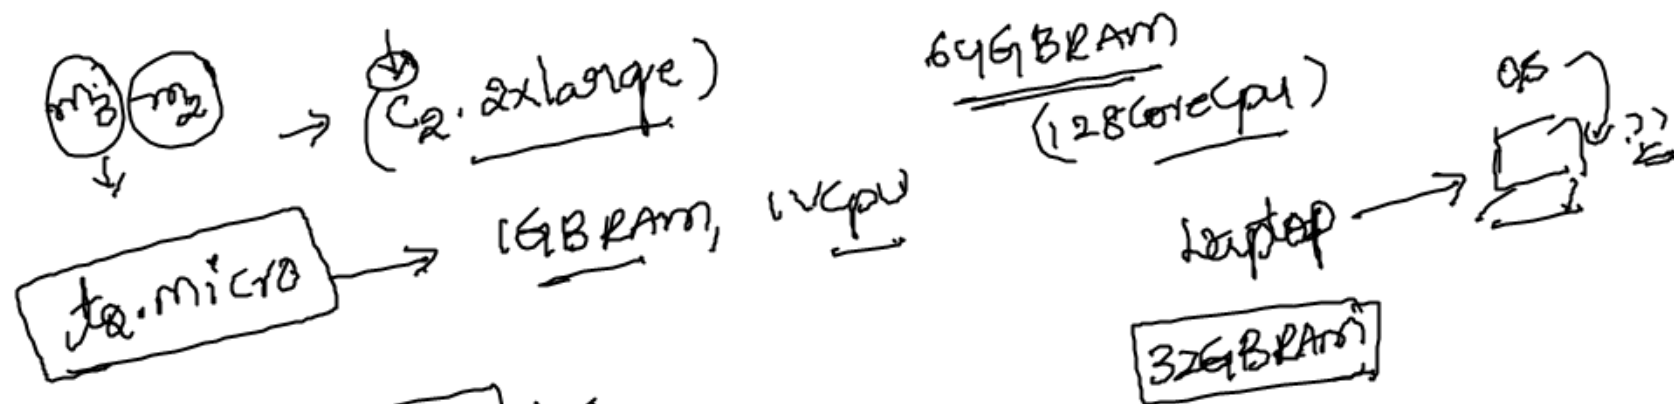 m3 m2 → (C2.2xlarge)
64GBRAM
(128CoreCpu)
OS
??
t2.micro → 1GBRAM, 1VCpu
Laptop →
32GBRAM